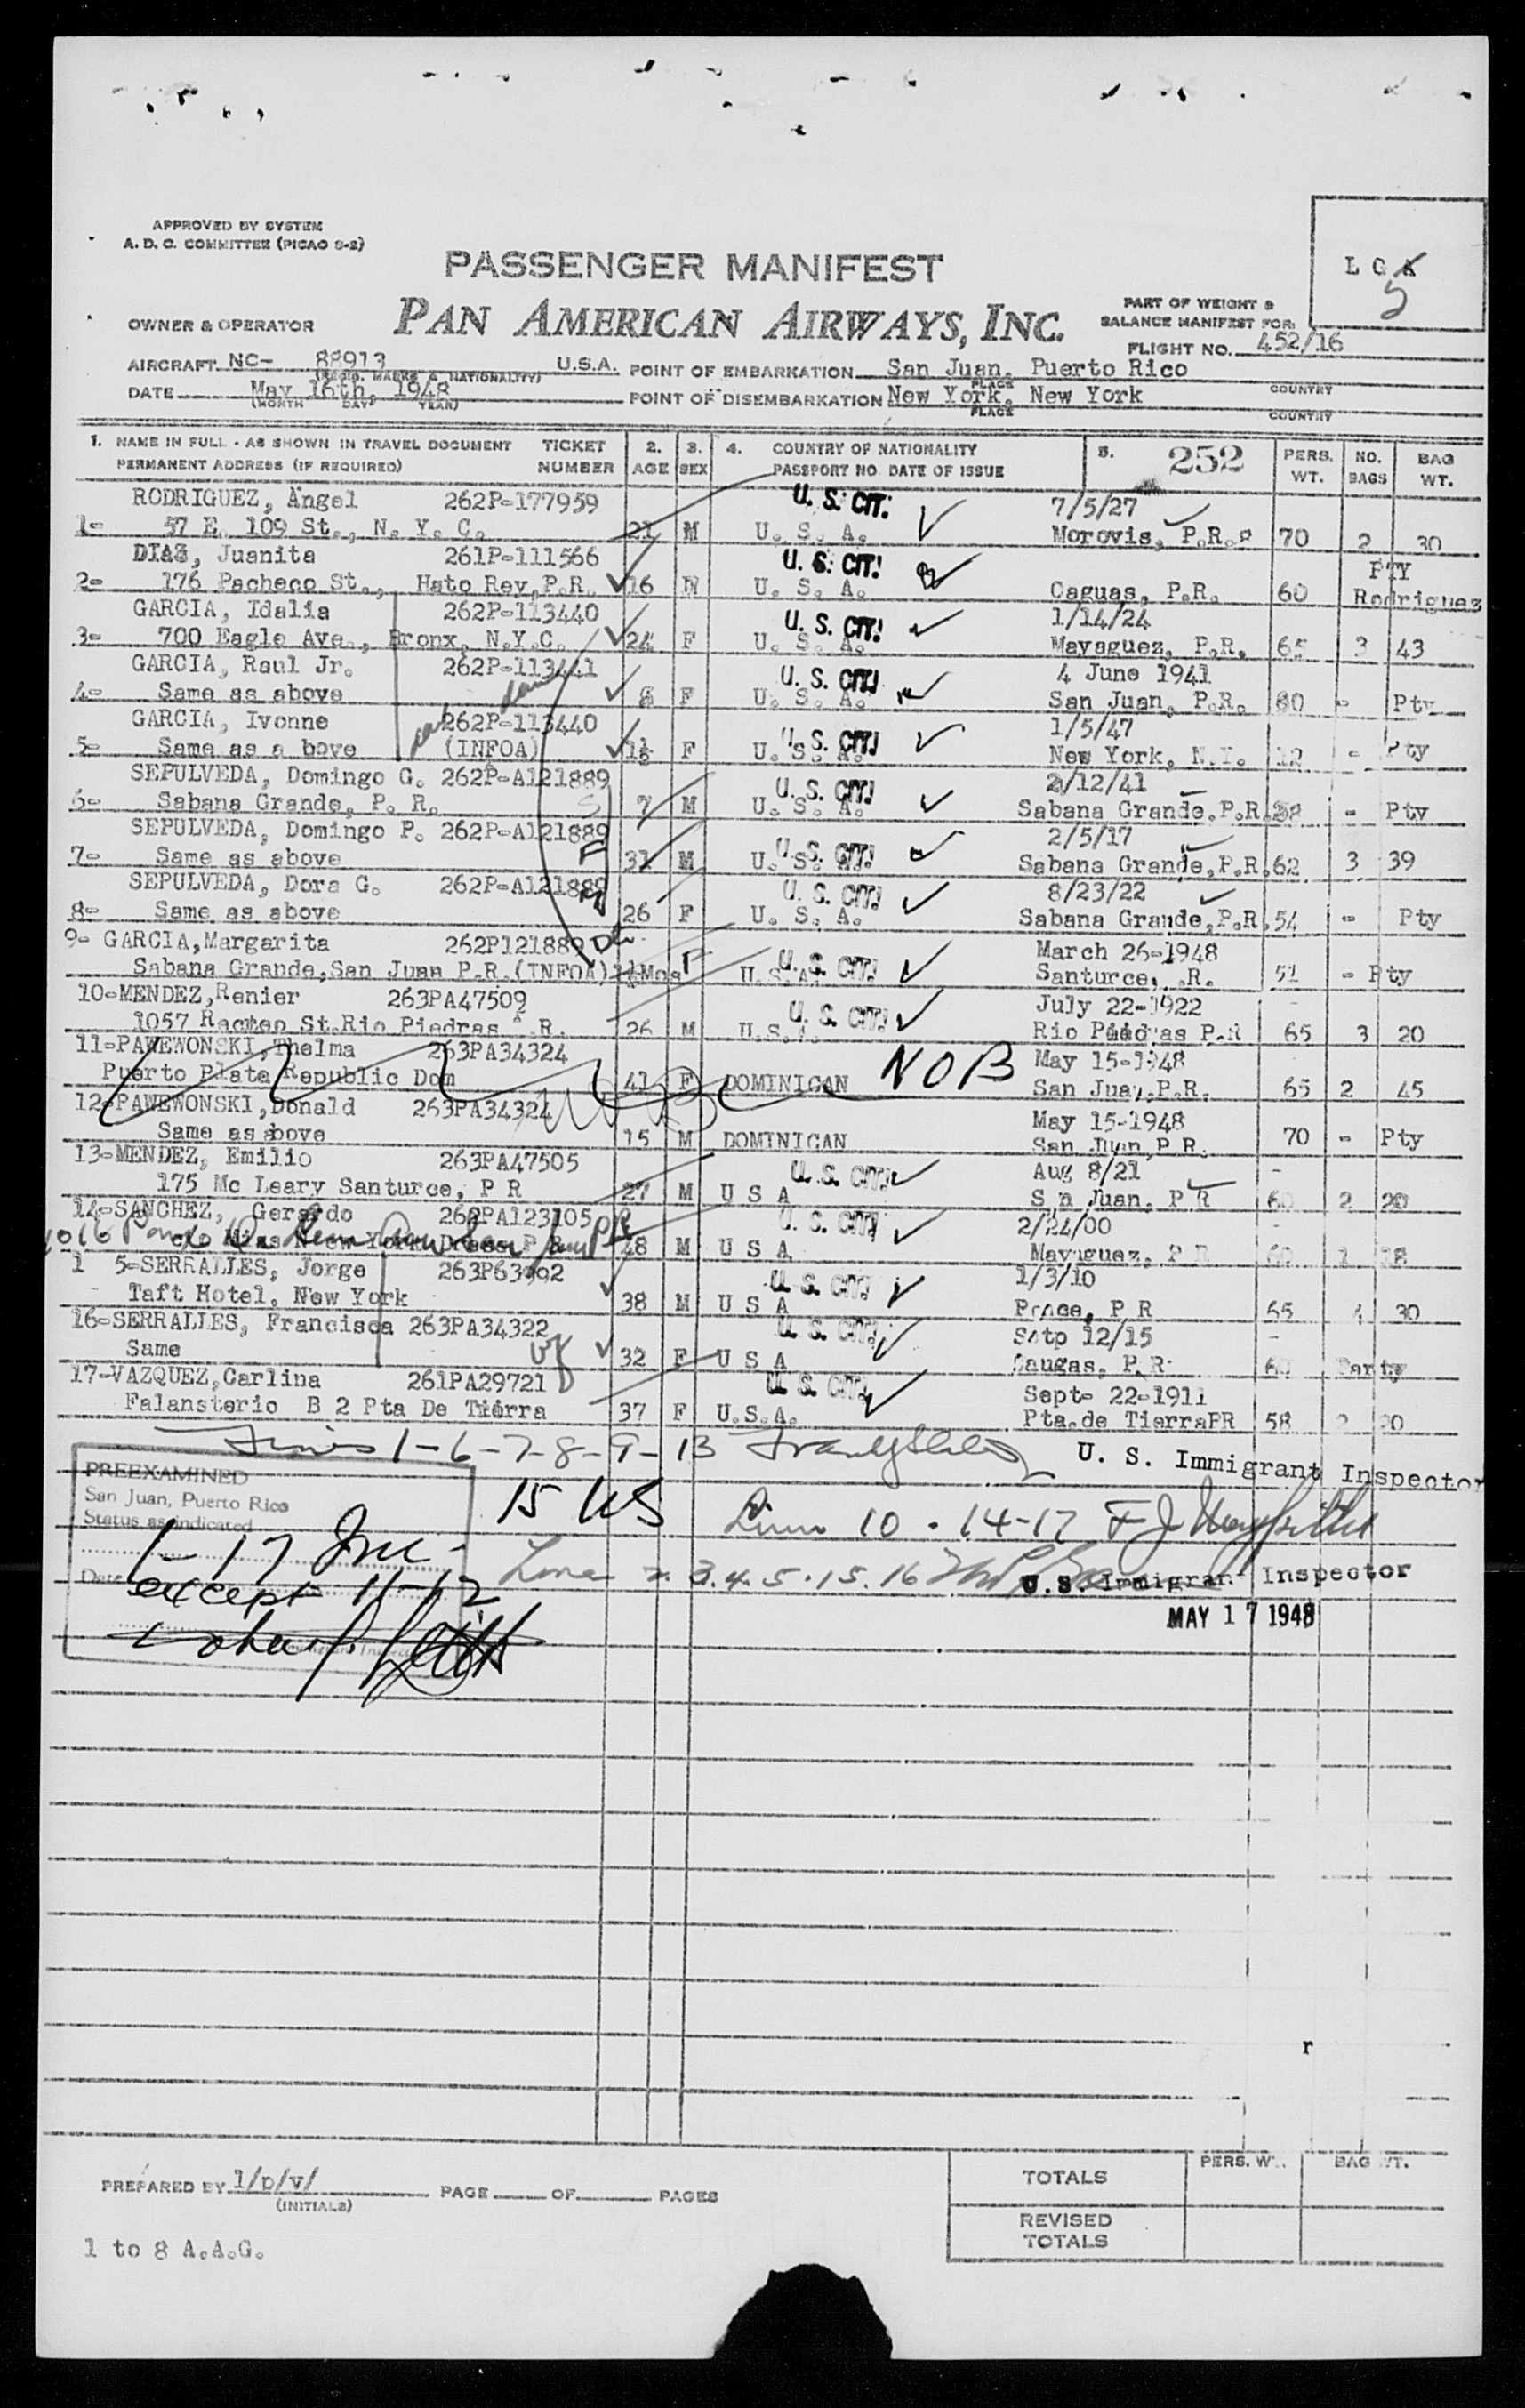 APPROVED BY SYSTEM
A. D. C. COMMITTEE (PICAO S-2)
L G A
5
PASSENGER MANIFEST
PAN AMERICAN AIRWAYS, INC.
OWNER & OPERATOR
PART OF WEIGHT &
BALANCE MANIFEST FOR:
FLIGHT NO. 452/16
AIRCRAFT NC- 88913 U.S.A. POINT OF EMBARKATION San Juan, Puerto Rico
(REGIS. MARKS & NATIONALITY) PLACE COUNTRY
DATE May 16th, 1948 POINT OF DISEMBARKATION New York, New York
(MONTH DAY YEAR) PLACE COUNTRY
1. NAME IN FULL - AS SHOWN IN TRAVEL DOCUMENT TICKET 2. 3. 4. COUNTRY OF NATIONALITY 5. 252 PERS. NO. BAG
PERMANENT ADDRESS (IF REQUIRED) NUMBER AGE SEX PASSPORT NO. DATE OF ISSUE WT. BAGS WT.
RODRIGUEZ, Angel 262P-177959 U. S. CIT. 7/5/27
1- 57 E. 109 St., N. Y. C. 21 M U. S. A. Morovis, P.R. 70 2 30
DIAZ, Juanita 261P-111566 U. S. CIT. PTY
2- 176 Pacheco St., Hato Rey, P.R. 16 U. S. A. Caguas, P.R. 60 Rodriguez
GARCIA, Idalia 262P-113440 U. S. CIT. 1/14/24
3- 700 Eagle Ave., Bronx, N.Y.C. 24 F U. S. A. Mayaguez, P.R. 65 3 43
GARCIA, Raul Jr. 262P-113441 U. S. CIT. 4 June 1941
4- Same as above 6 F U. S. A. San Juan, P.R. 80 - Pty
GARCIA, Ivonne 262P-113440 U. S. CIT. 1/5/47
5- Same as a bove (INFOA) 1½ F U. S. A. New York, N.Y. 12 - Pty
SEPULVEDA, Domingo G. 262P-A121889 U. S. CIT. 2/12/41
6- Sabana Grande, P. R. 7 M U. S. A. Sabana Grande, P.R. 38 - Pty
SEPULVEDA, Domingo P. 262P-A121889 U. S. CIT. 2/5/17
7- Same as above 31 M U. S. A. Sabana Grande, P.R. 62 3 39
SEPULVEDA, Dora G. 262P-A121889 U. S. CIT. 8/23/22
8- Same as above 26 F U. S. A. Sabana Grande, P.R. 54 - Pty
9- GARCIA, Margarita 262P121889 U. S. CIT. March 26-1948
Sabana Grande, San Juan P.R. (INFOA) Mos F U.S.A. Santurce, .R. 51 - Pty
10-MENDEZ, Renier 263PA47509 U. S. CIT. July 22-1922
1057 St. Rio Piedras .R. 26 M U.S.A. Rio Piedras P.R 65 3 20
11-PAWEWONSKI, Thelma 263PA34324 NOB May 15-1948
Puerto Plata Republic Dom 41 F DOMINICAN San Juan, P.R. 65 2 45
12-PAWEWONSKI, Donald 263PA34324 May 15-1948
Same as above 15 M DOMINICAN San Juan, P R. 70 - Pty
13-MENDEZ, Emilio 263PA47505 U. S. CIT. Aug 8/21
175 Mc Leary Santurce, P R 27 M U S A San Juan, P R 60 2 20
14-SANCHEZ, Gerardo 262PA123105 U. S. CIT. 2/24/00
48 M U S A Mayaguez, P R 60 1 18
1 5-SERRALLES, Jorge 263P63992 U. S. CIT. 1/3/10
Taft Hotel, New York 38 M U S A Ponce, P R 65 4 30
16-SERRALLES, Francisca 263PA34322 U. S. CIT. Setp 12/15
Same 32 F U S A Caugas, P.R. 60 Party
17-VAZQUEZ, Carlina 261PA29721 U. S. CIT. Sept- 22-1911
Falansterio B 2 Pta De Tierra 37 F U.S.A. Pta. de Tierra PR 58 2 20
Lines 1-6-7-8-9-13
U. S. Immigrant Inspector
PREEXAMINED
San Juan, Puerto Rico
Status as indicated
Date
15 US
Lines 10 - 14-17
1-17 Inc
except 11-12
Lines 2.3.4.5.15.16
U.S. Immigrant Inspector
MAY 17 1948
r
PREPARED BY 1/p/v/ PAGE OF PAGES
(INITIALS)
TOTALS PERS. WT. BAG WT.
REVISED
TOTALS
1 to 8 A.A.G.